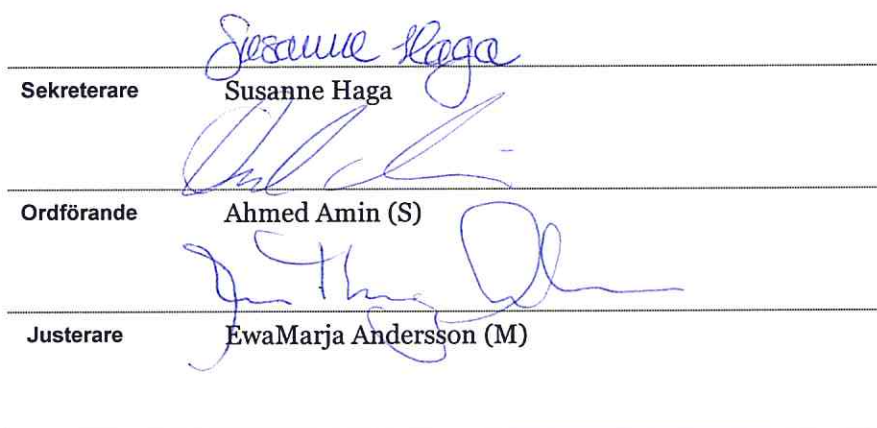 Susanne Haga
Sekreterare Susanne Haga
Ordförande Ahmed Amin (S)
Justerare EwaMarja Andersson (M)